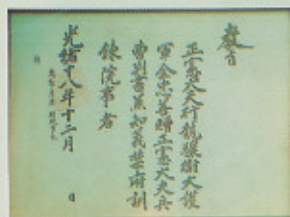 敎旨
正憲大夫行龍驤衛大護
軍金忠善贈正憲大夫兵
曹判書兼知義禁府訓
鍊院事者
光緖十八年十二月 日